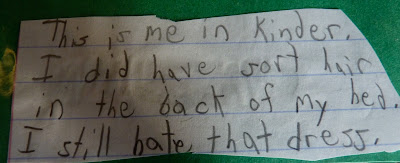 This is me in Kinder.
I did have sort hair
in the back of my hed.
I still hate that dress.